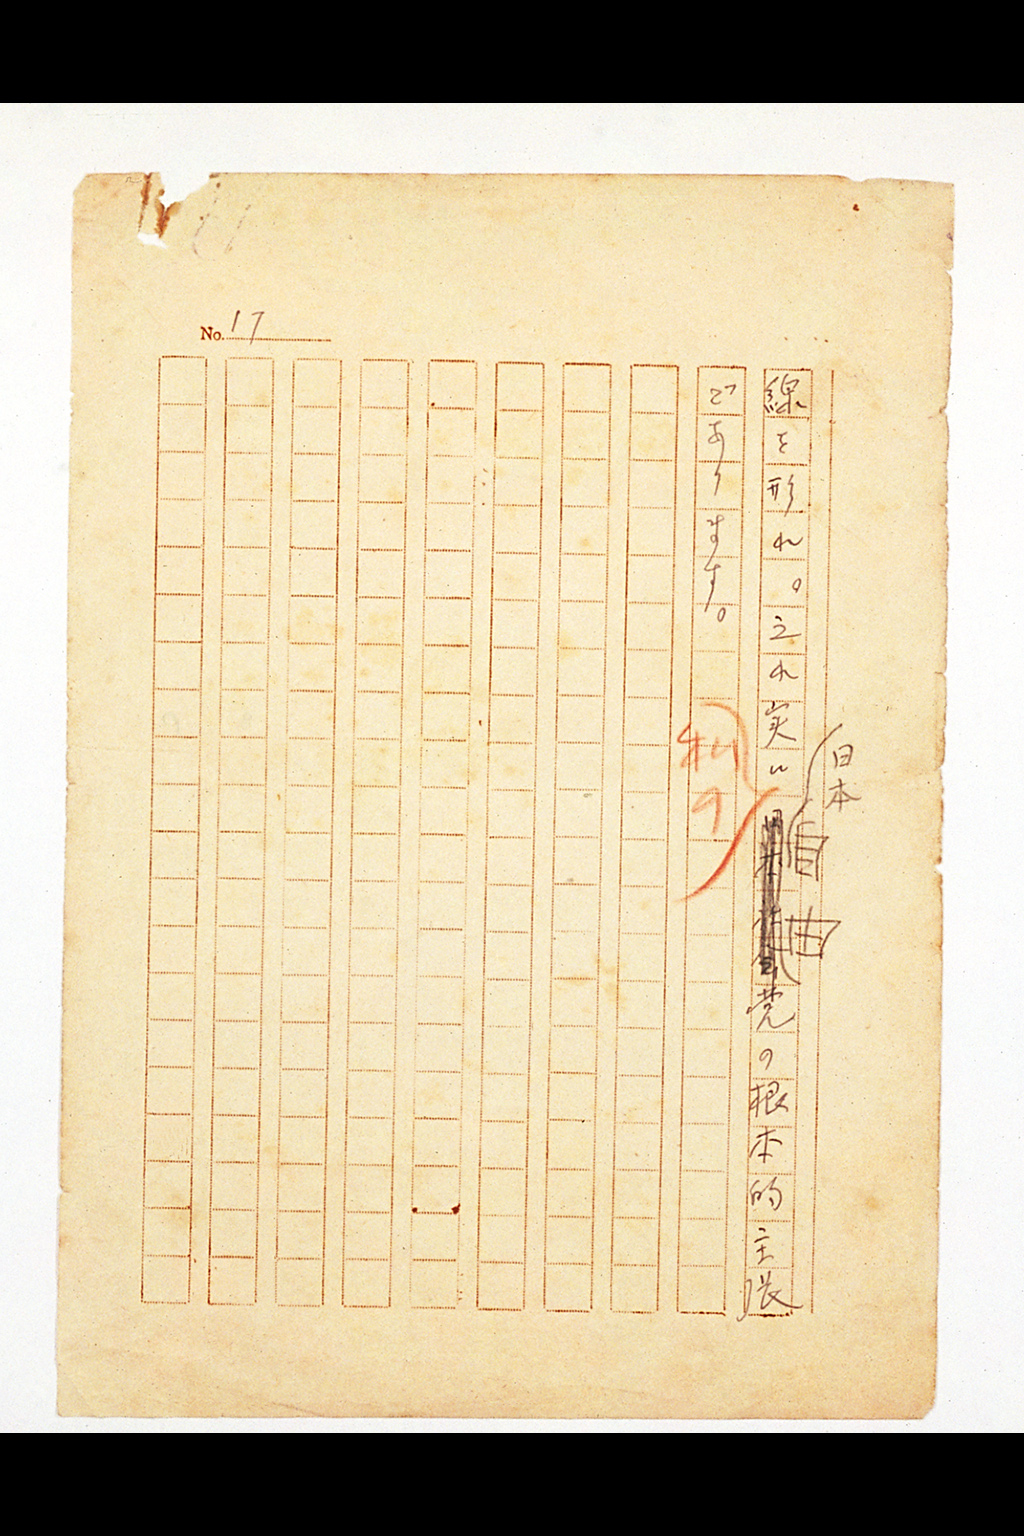 No. 17
日本
自由
線を形れ。之れ実に
党の根本的主張
であります。
私の